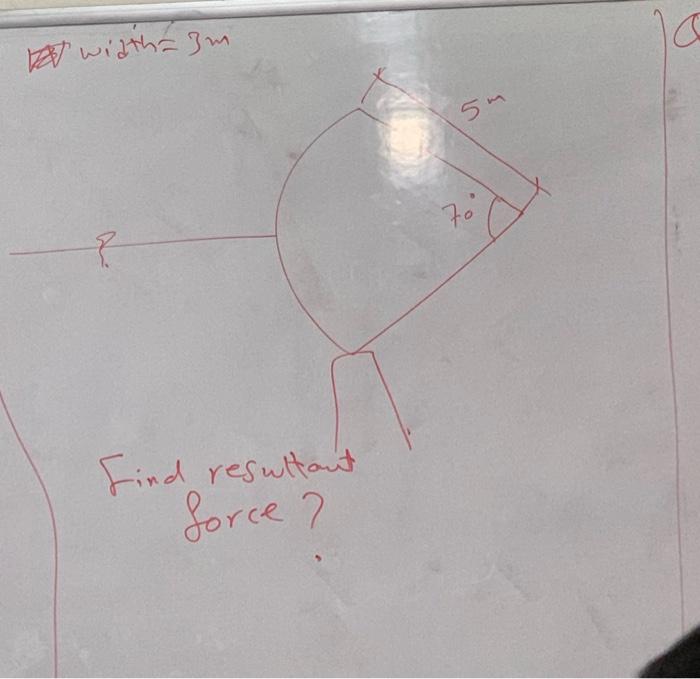 width = 3m
5 m
70°
Find resultant
force ?